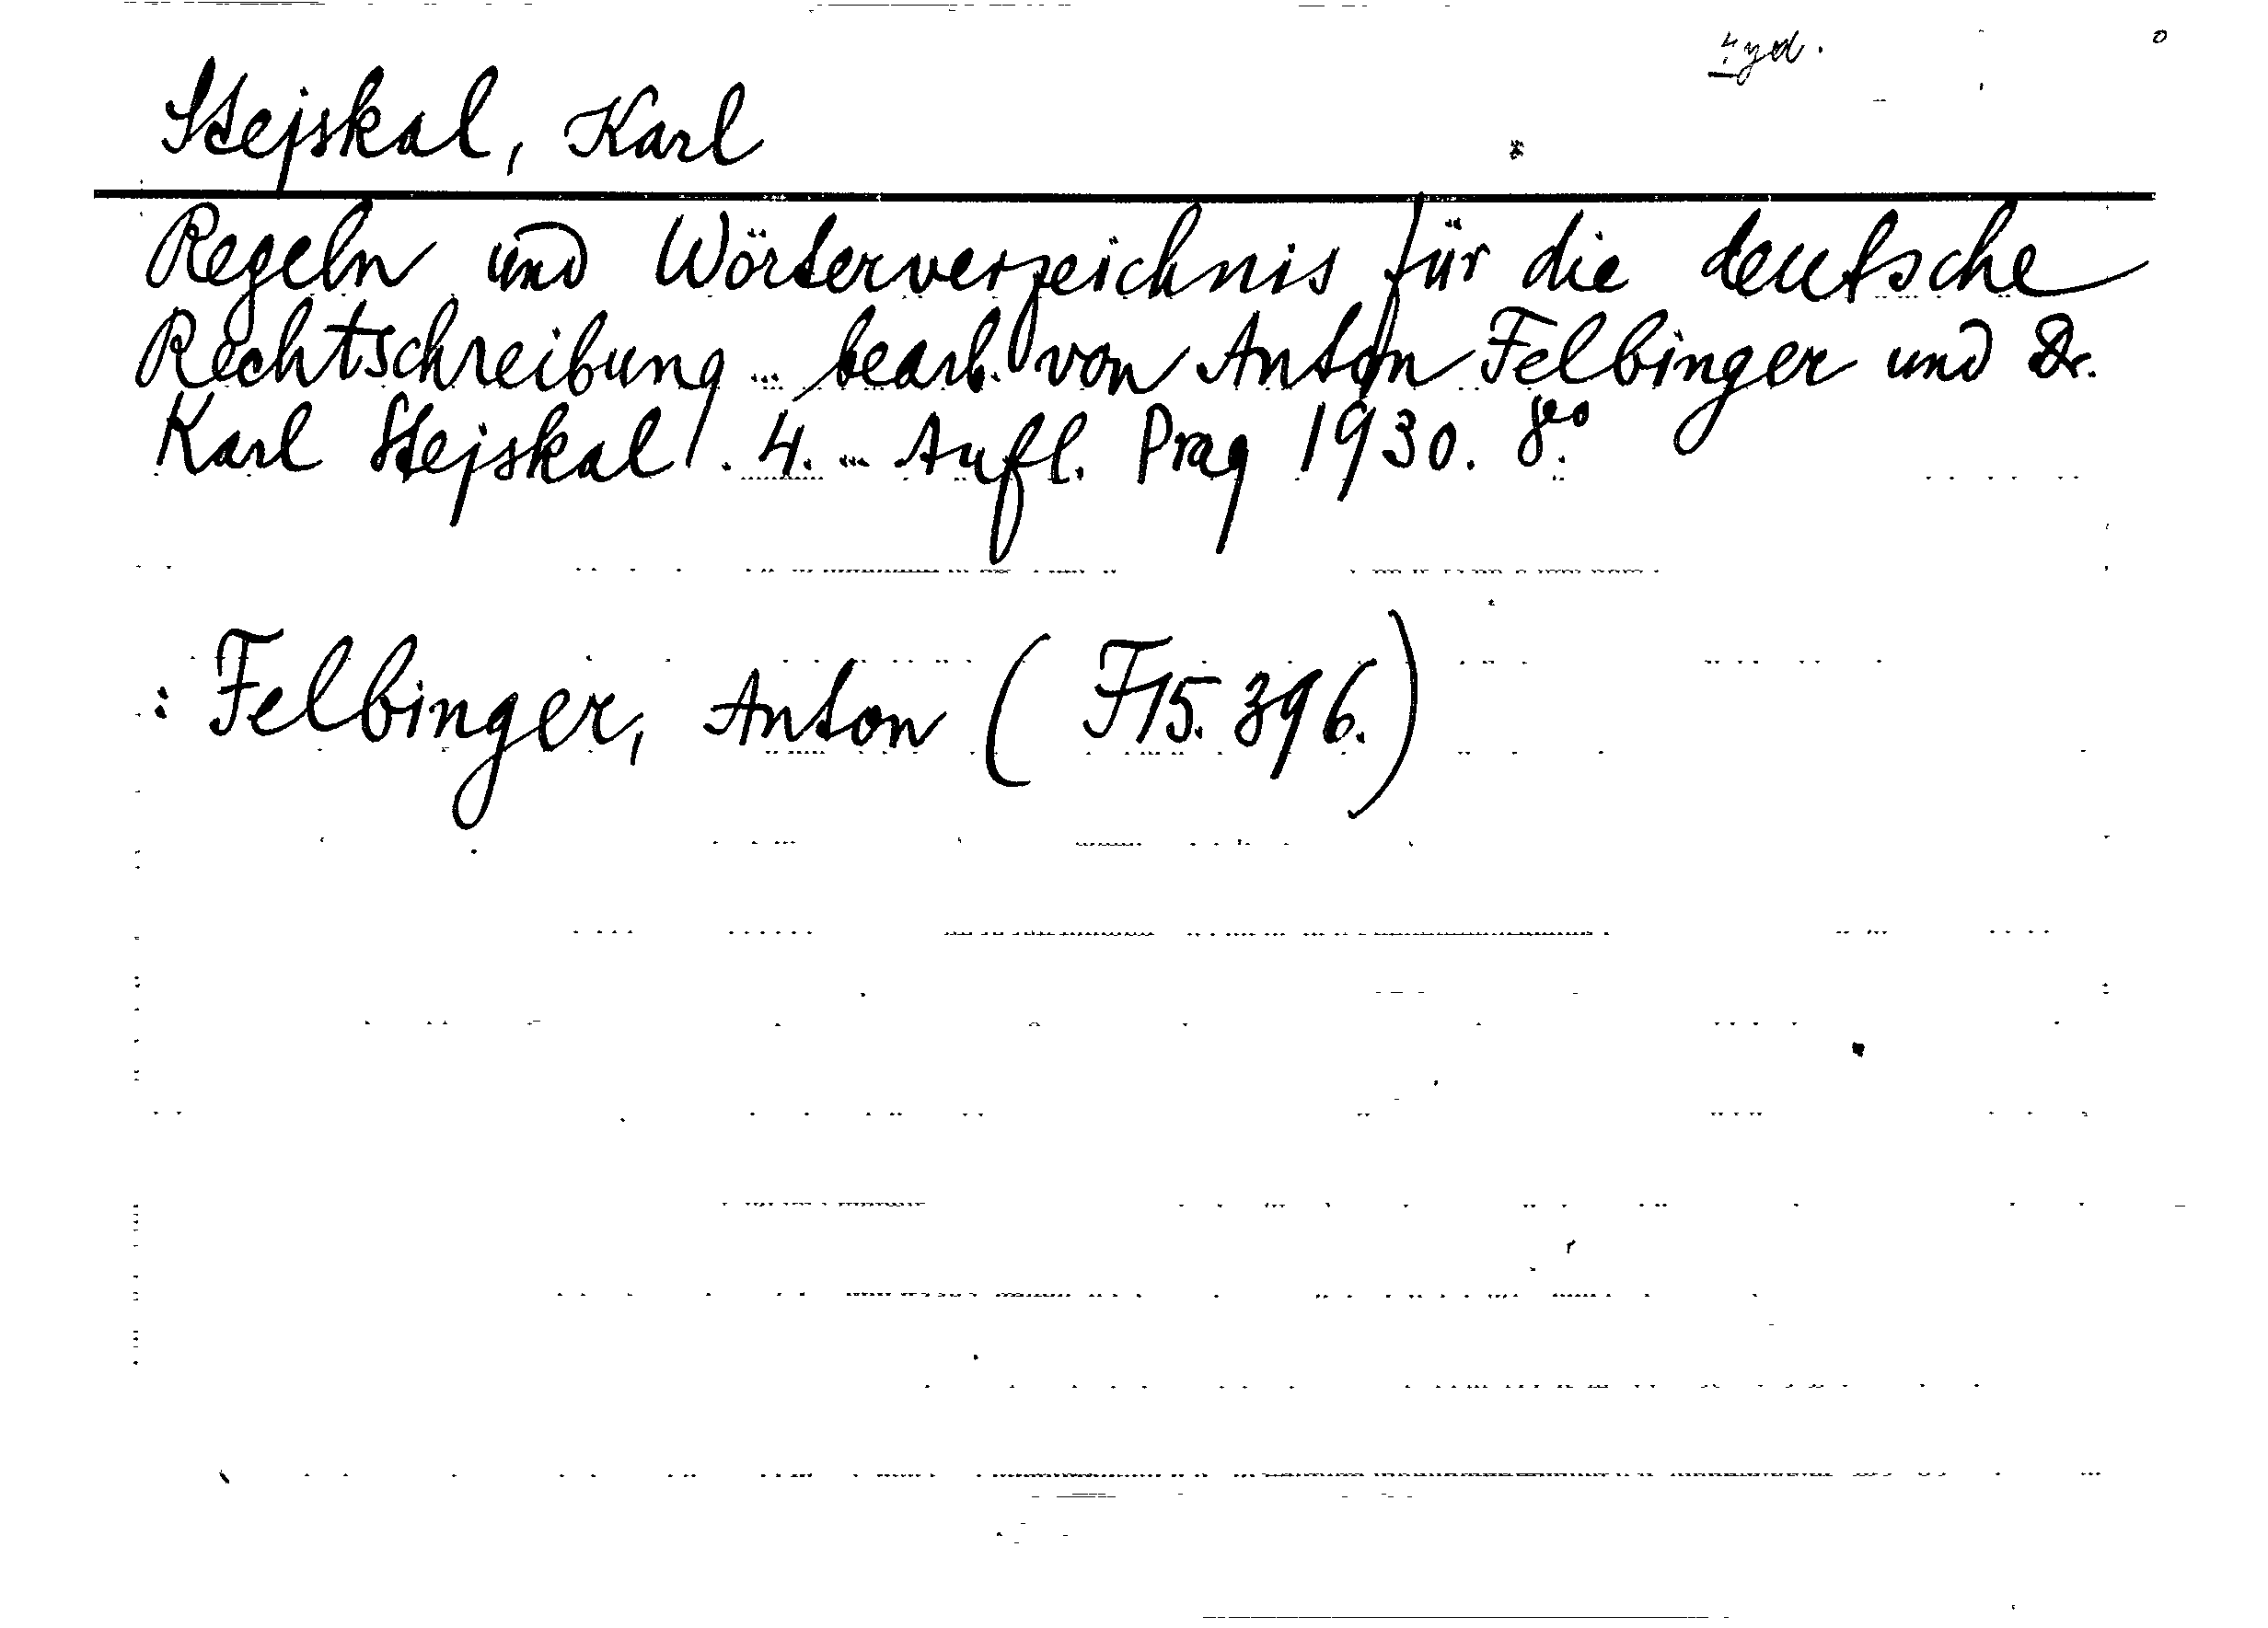 4. vyd.
Stejskal, Karl
Regeln und Wörterverzeichnis für die deutsche
Rechtschreibung ... bearb. von Anton Felbinger und Dr.
Karl Stejskal. 4. ... Aufl. Prag 1930. 8°.
: Felbinger, Anton (F15.396.)